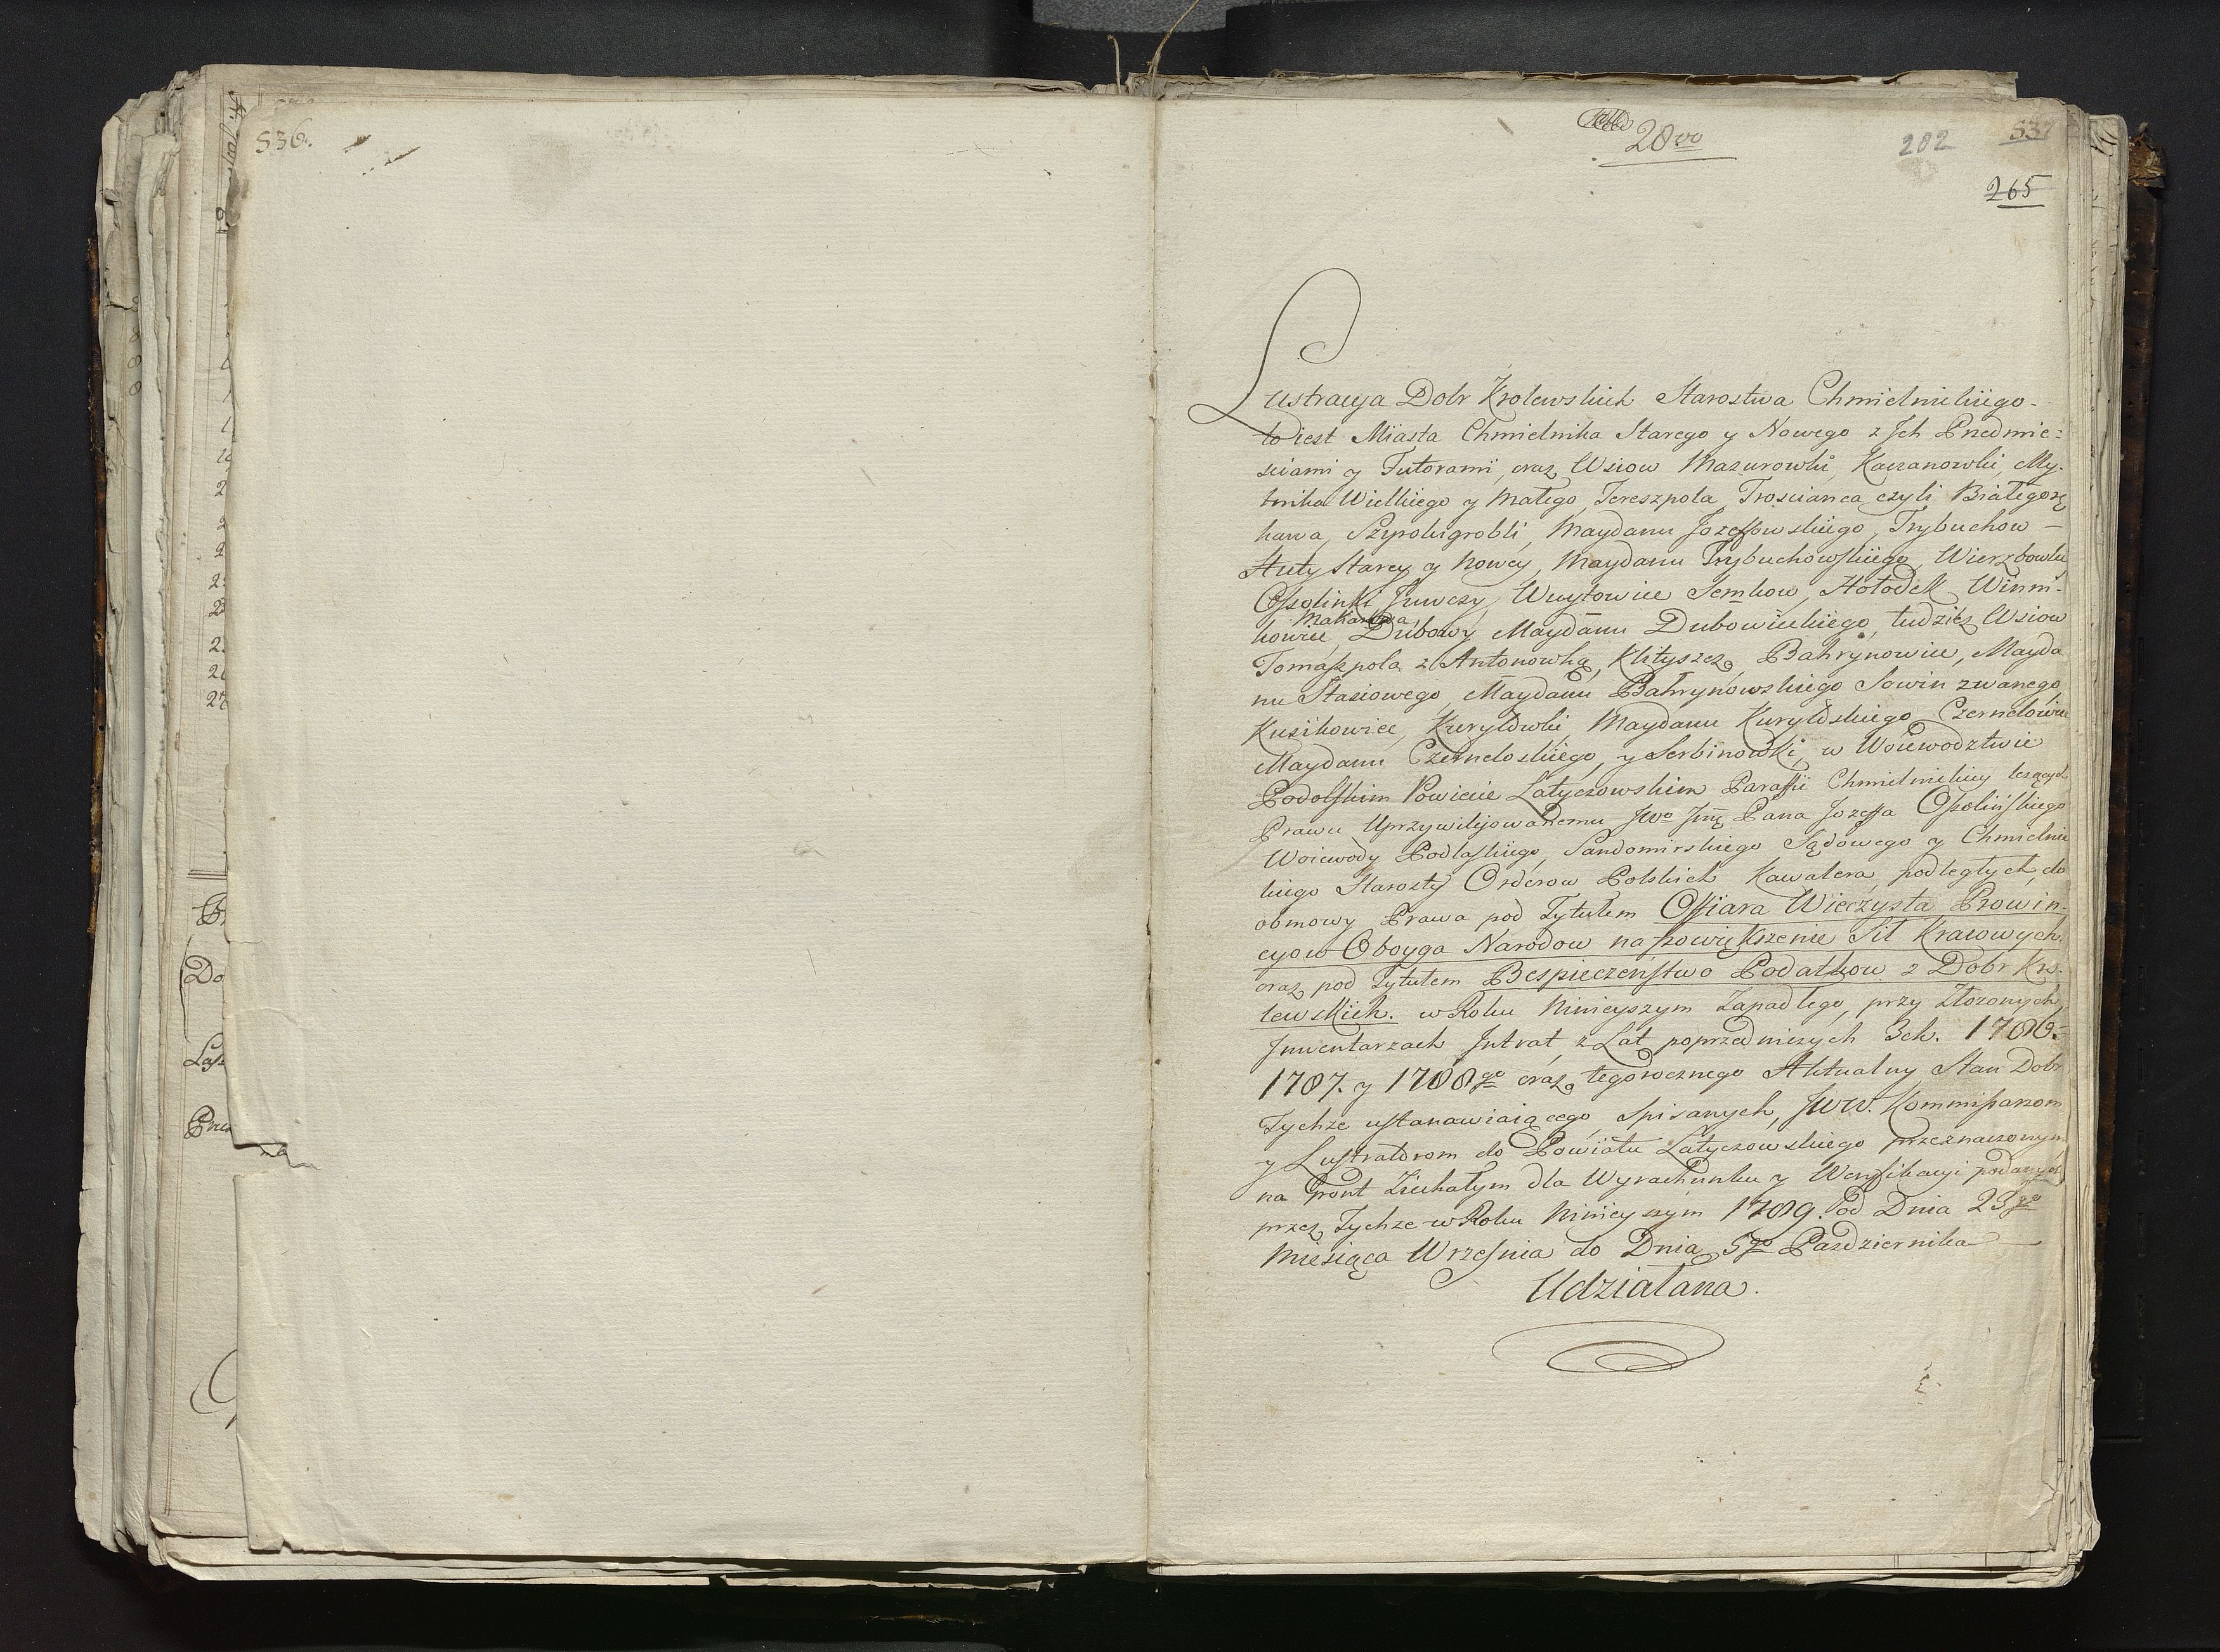 536.
28vo
282
537
265
Lustracya Dobr Krolewskich Starostwa Chmielnickiego-
to iest Miasta Chmielnika Starego y Nowego z Jch Przedmie=
sciami y Futorami, oraz Wsiow Mazurowki, Kaczanowki, My-
tnika Wielkiego y Małego, Tereszpola, Trosciańca czyli Białegorę
kawa, Szyrokigrobli, Maydanu Jozeffowskiego, Trybuchow –
Huty Starey y Nowey, Maydanu Trybuchowskiego, Wierzbowki
Ossolinki, Juwczy, Wuytowiec Semkow, Hołodek Winni-
Makarowa,
kowiec, Dubowy Maydanu Dubowieckiego, tudziesz Wsiow
Tomaszpola z Antonowką, Klityszcz, Bahrynowiec, Mayda
nu Stasiowego, Maydanu Bahrynowskiego Sowin zwanego
Kusikowiec, Kuryłowki, Maydanu Kuryłoskiego, Czernelowiec
Maydanu Czerneloskiego, y Serbinowki, w Woiewodztwie
Podolskim Powiecie Latyczowskim Paraffii Chmielnickiey leżących
Prawu Uprzywilijowanemu JWo Jmę Pana Jozeffa Ossolińskiego
Woiewody Podlaskiego, Sandomirskiego Sądowego y Chmielnic
kiego Starosty Orderow Polskich Kawalera, podległych, do
osnowy Prawa pod Tytułem Offiara Wieczysta Prowin-
cyow Oboyga Narodow na powiększenie Sił Kraiowych
oraz pod Tytułem Bespieczeństwo Podatkow z Dobr Kro-
lewskich. w Roku Ninieyszym Zapadłego, przy Złozonych
Jnwentarzach Jntrat, z Lat poprzedniczych 3ch. 1786=
1787. y 1788go oraz tegorocznego Aktualny Stan Dobr
Tychze ustanawiaiącego, Spisanych, JWW. Kommissarzom
y Lustratorom do Powiatu Latyczowskiego przeznaczonym
na Gront Ziechałym dla Wyrachunku y Weryfikacyi podanych
przez Tychze w Roku Ninieyszym 1789. Od Dnia 23go
Miesiąca Września do Dnia 5go Pazdziernika
Udziałana.